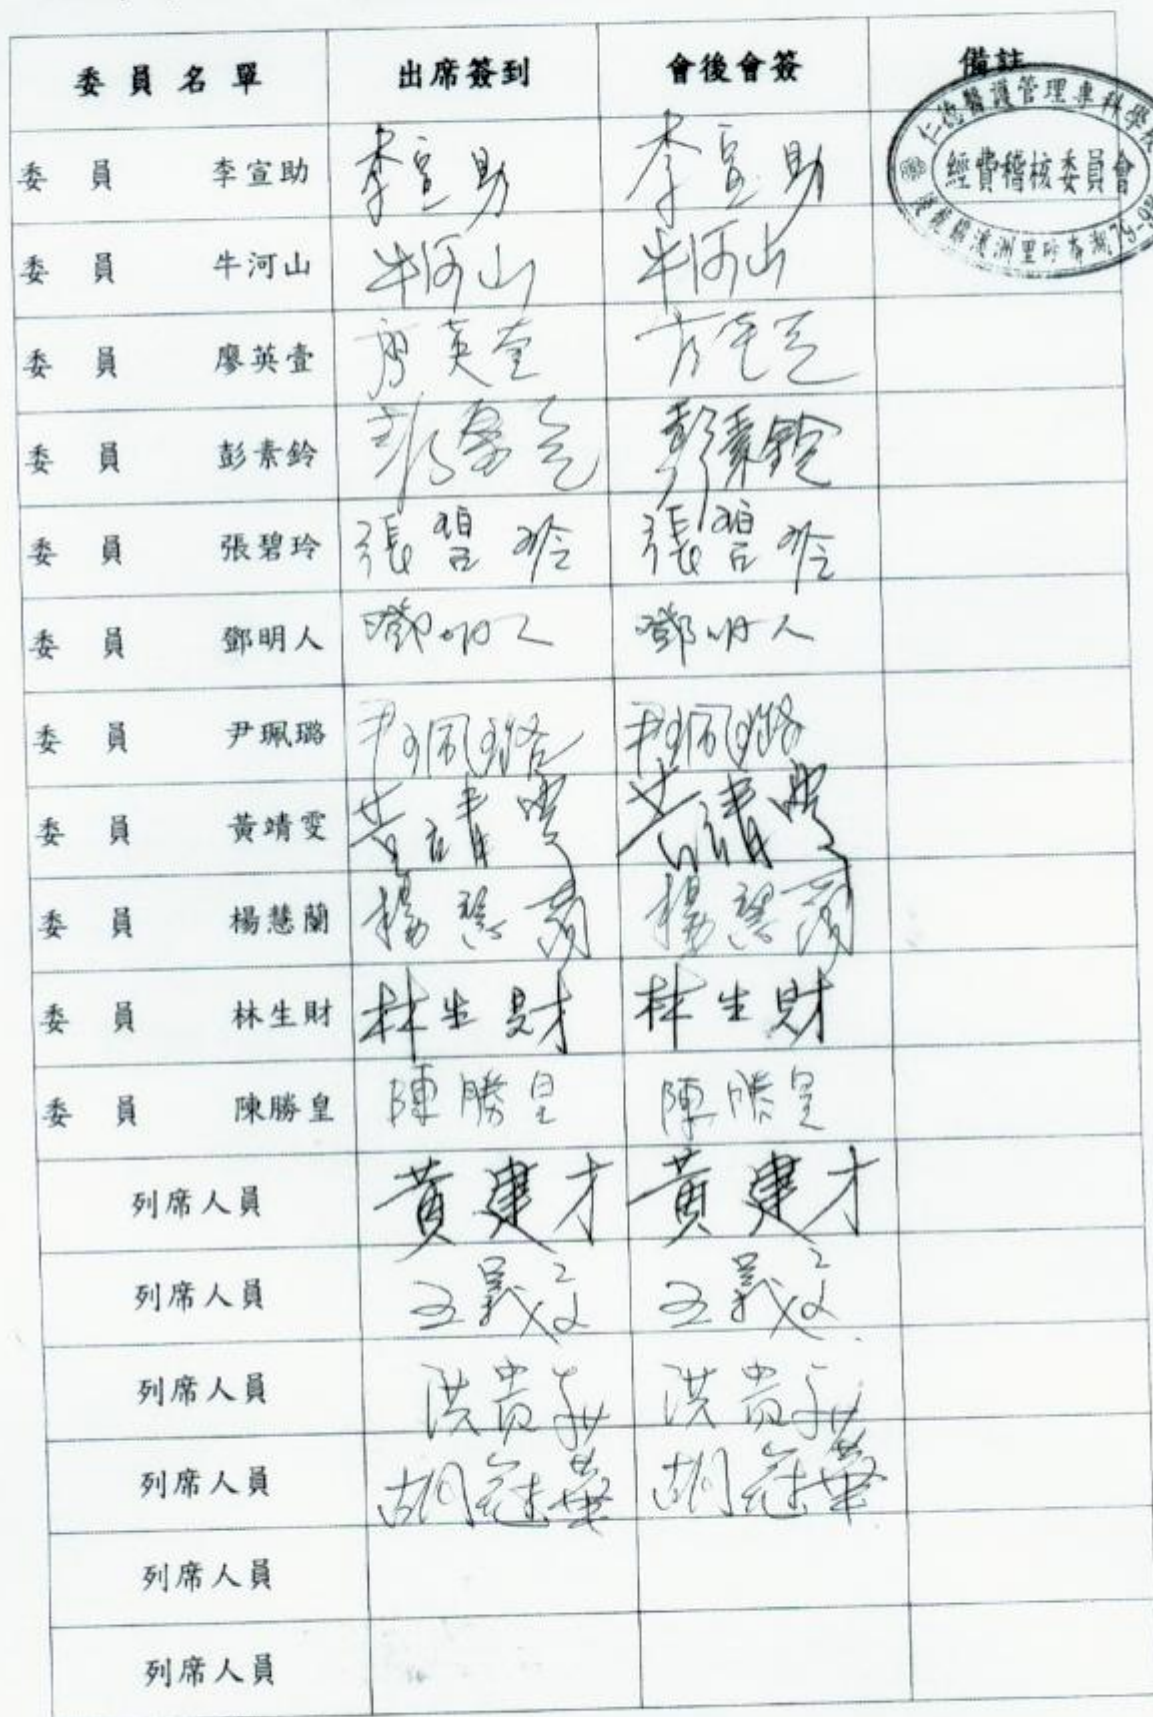 委員名單 出席簽到 會後會簽 備註
仁德醫護管理專科學校
經費稽核委員會
委員 李宣助 李宣助 李宣助
委員 牛河山 牛河山 牛河山
委員 廖英壹 廖英壹
委員 彭素鈴 彭素鈴 彭素鈴
委員 張碧玲 張碧玲 張碧玲
委員 鄧明人 鄧明人 鄧明人
委員 尹珮璐 尹珮璐 尹珮璐
委員 黃靖雯 黃靖雯 黃靖雯
委員 楊慧蘭 楊慧蘭 楊慧蘭
委員 林生財 林生財 林生財
委員 陳勝皇 陳勝皇 陳勝皇
列席人員 黃建才 黃建才
列席人員
列席人員 洪貴 洪貴
列席人員 胡冠華 胡冠華
列席人員
列席人員